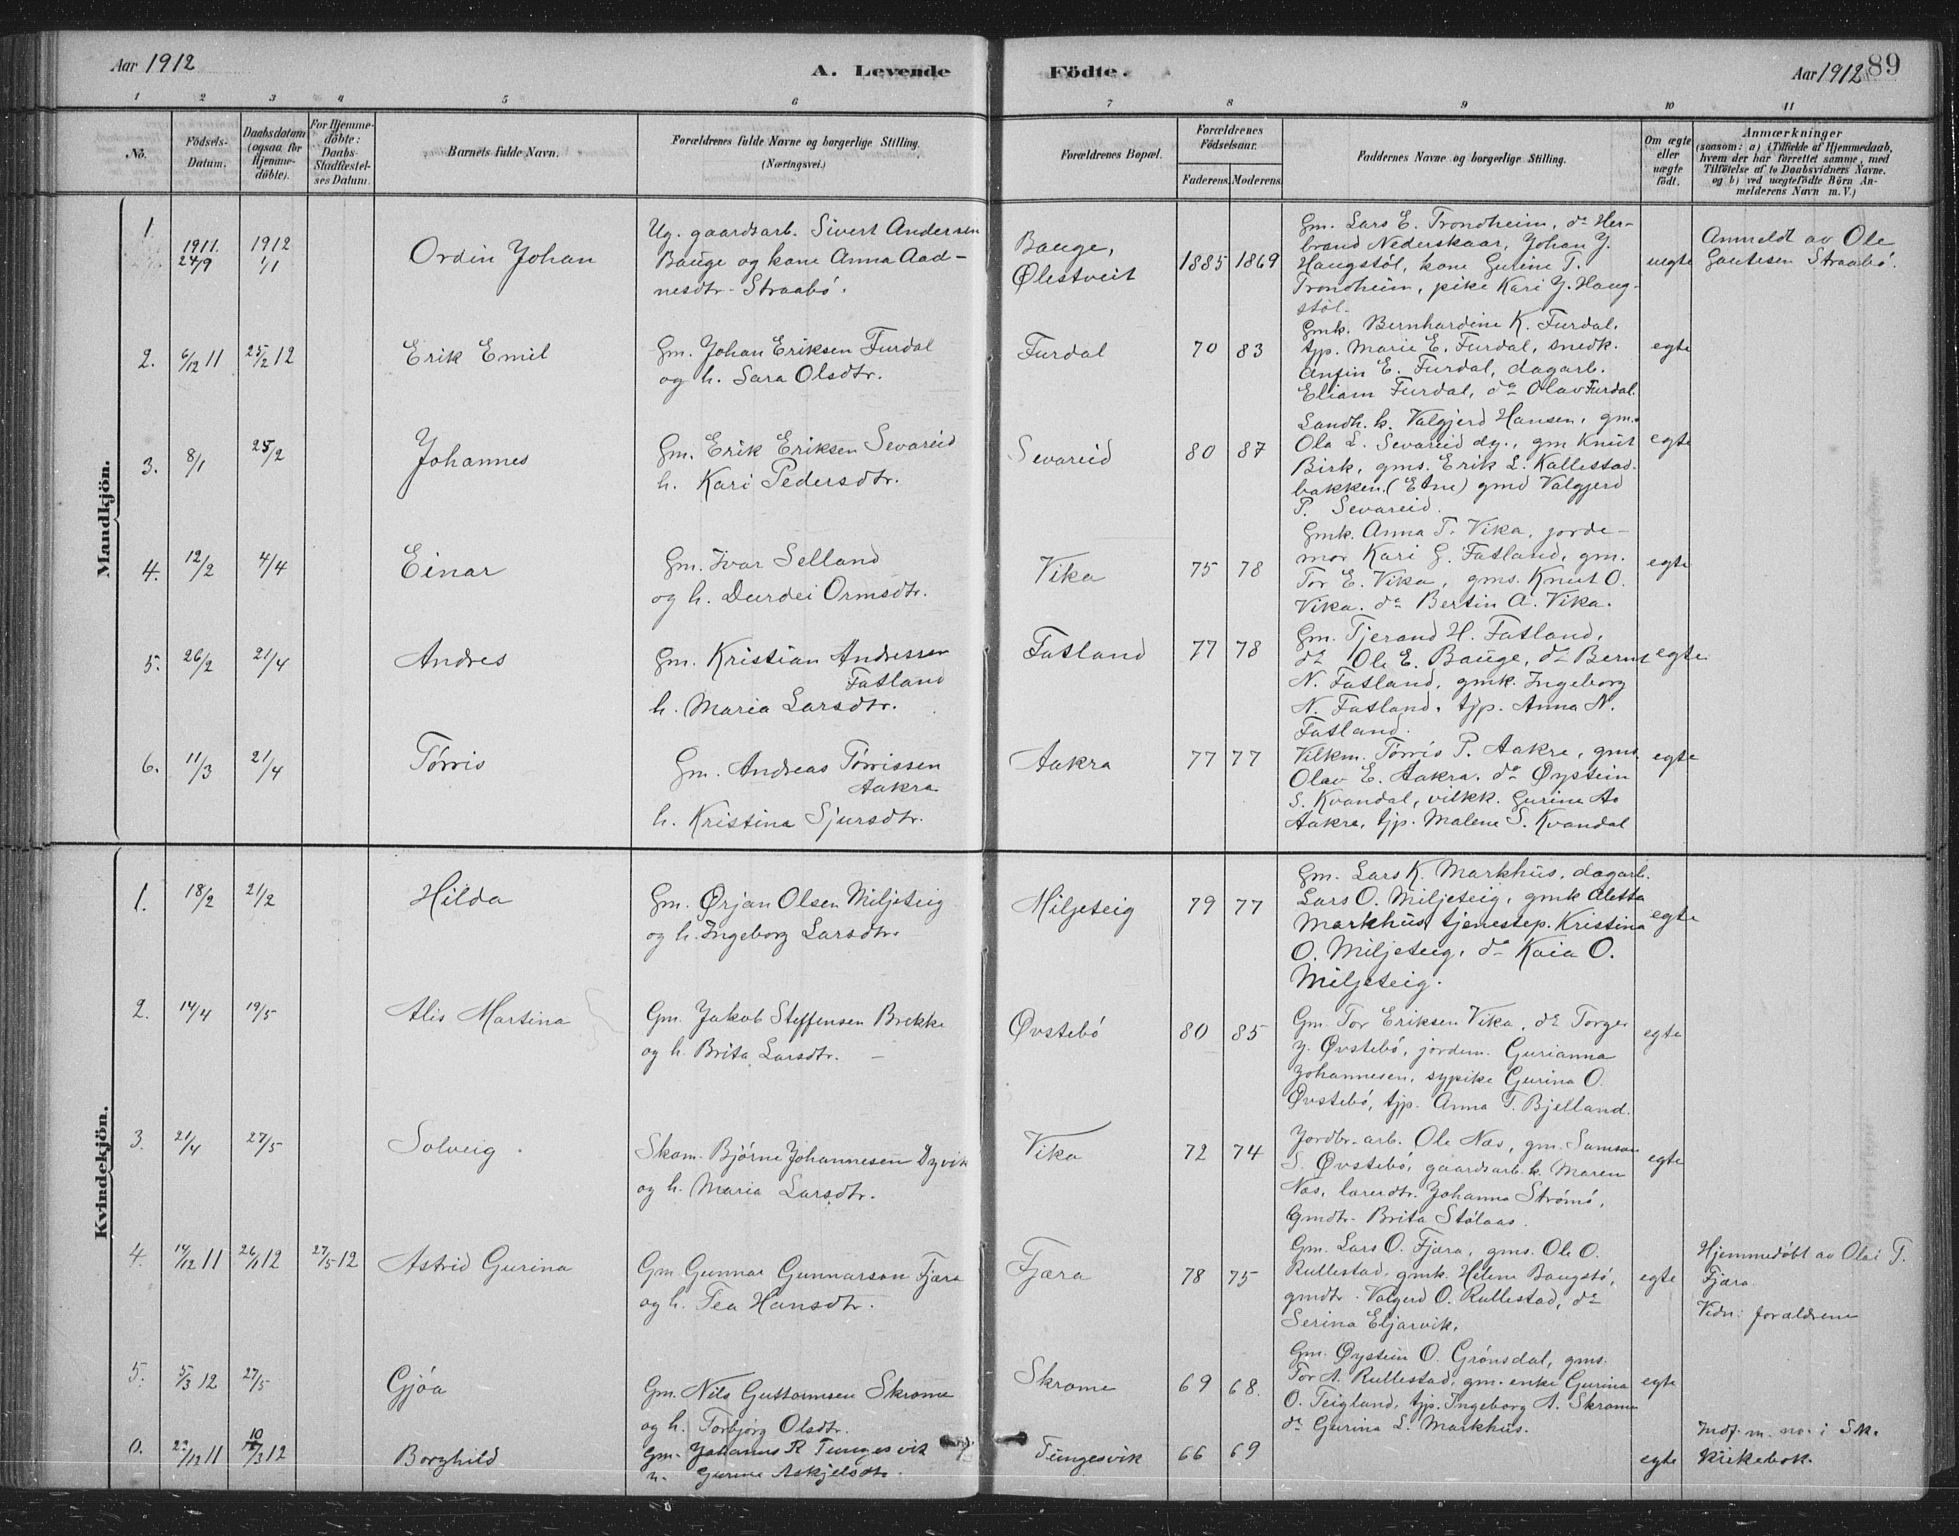 Aar 1912
A. Levende
Födte.
Aar 1912
89
1 2 3 4 5 6 7 8 9 10 11
No.
Födsels-
Datum.
Daabsdatum
(ogsaa for
Hjemme-
döbte).
For Hjemme-
döbte:
Daabs-
Stadfæstel-
ses Datum.
Barnets fulde Navn.
Forældrenes fulde Navne og borgerlige Stilling.
(Næringsvei.)
Forældrenes Bopæl.
Forældrenes
Födselsaar.
Faderens. Moderens.
Faddernes Navne og borgerlige Stilling.
Om ægte
eller
uægte
födt.
Anmærkninger
(saasom: a) (Tilfælde af Hjemmedaab,
hvem der har forrettet samme, med
Tilföielse af to Daabsvidners Navne.
og b) ved uægtefödte Börn An-
melderens Navn m. V.)
Mandkjön.
1
1911. 24/9
1912 1/1
Ordin Johan
Ug. gaardsarb. Sivert Andersen
Bauge og kone Anna Aad-
nesdtr. Straabö.
Bauge,
Ølestveit
1885 1869
Gm. Lars E. Trondheim, do Her-
brand Nederskaar, Johan J.
Haugstöl, kone Gurine T.
Trondheim, pike Kari J. Haug-
stöl.
uegte
Anmeldt av Ole
Gautesen Straabö.
2. 6/12 11 25/2 12
Erik Emil
Gm. Johan Eriksen Furdal
og h. Sara Olsdtr.
Furdal
70 83
Gmk. Bernhardine K. Furdal,
tjp. Marie E. Furdal, snedk.
Anfin E. Furdal, dagarb.
Eliam Furdal, do Olav Furdal.
egte
3. 8/1 25/2
Johannes
Gm. Erik Eriksen Sevareid
h. Kari Pedersdtr.
Sevareid
80 87
Landh. k. Valgjerd Hansen, gms.
Ola L. Sevareid dy., gm Knut
Birk, gms. Erik L. Kallestad-
bakken (Etne) gmd Valgjerd
P. Sevareid.
egte
4. 12/2 4/4
Einar
Gm. Ivar Selland
og h. Durdei Ormsdtr.
Vika
75 78
Gmk. Anna T. Vika, jorde-
mor Kari G. Fatland, gm.
Tor E. Vika, gms. Knut O.
Vika. do Bertin A. Vika.
egte
5. 26/2 21/4
Andres
Gm. Kristian Andressen
Fatland
h. Maria Larsdtr.
Fatland
77 78
Gm. Tjerand H. Fatland,
do Ole E. Bauge, do Bernt
N. Fatland, gmk. Ingeborg
N. Fatland, tjp. Anna N.
Fatland.
egte
6. 11/3 21/4
Tørris
Gm. Andreas Tørrissen
Aakra
h. Kristina Sjursdtr.
Aakra
77 77
Vilkm. Tørris P. Aakre, gms
Olav E. Aakra, do Øystein
S. Kvandal, vilkk. Gurina A.
Aakre, tjp. Malene S. Kvandal
egte
Kvindekjön.
1. 18/2 21/2
Hilda
Gm. Ørjan Olsen Miljeteig
og h. Ingeborg Larsdtr.
Miljeteig
79 77
Gm. Lars K. Markhus, dagarb.
Lars O. Miljeteig, gmk Aletta
Markhus, tjenestep. Kristina
O. Miljeteig, do Kaia O.
Miljeteig.
egte
2. 14/4 19/5
Alis Martina
Gm. Jakob Steffensen Brekke
og h. Brita Larsdtr.
Øvstebö
80 85
Gm. Tor Eriksen Vika, do Torger
J. Øvstebö, jordm. Gurianna
Johannesen, sypike Gurina O.
Øvstebö, tjp. Anna T. Bjelland.
egte
3. 21/4 27/5
Solveig
Skom. Bjørne Johannesen Dyvik
og h. Maria Larsdtr.
Vika
72 74
Jordbr. arb. Ole Næs, gm. Samson
S. Øvstebö, gaardsarb. k. Maren
Næs, lærerdtr. Johanna Strömö,
Gmdtr. Brita Stölaas.
egte
4. 14/12 11 26/1 12 27/5 12
Astrid Gurina
Gm. Gunnar Gunnarson Fjæra
og h. Tea Hansdtr.
Fjæra
78 75
Gm. Lars O. Fjæra, gms. Ole O.
Rullestad, gmk. Helene Baugstö,
gmdtr. Valgerd O. Rullestad, do
Serina Eljarvik.
egte
Hjemmedøbt av Olai T.
Fjæra.
Vidn: forældrene
5. 5/3 12 27/5
Gjøa
Gm. Nils Guttormsen Skrome
og h. Torbjörg Olsdtr.
Skrome
69 68.
Gm. Øystein O. Grönsdal, gms.
Tor A. Rullestad, gm. enke Gurina
O. Teigland, tjp. Ingeborg A. Skrome
do Gurina L. Markhus.
egte
0. 22/12 11 10/3 12
Borghild
Gm. Johannes R Tungesvik
h. Gurine Askjelsdtr.
Tungesvik
66 69
egte
Indf. m. no. i Sk.
kirkebok.